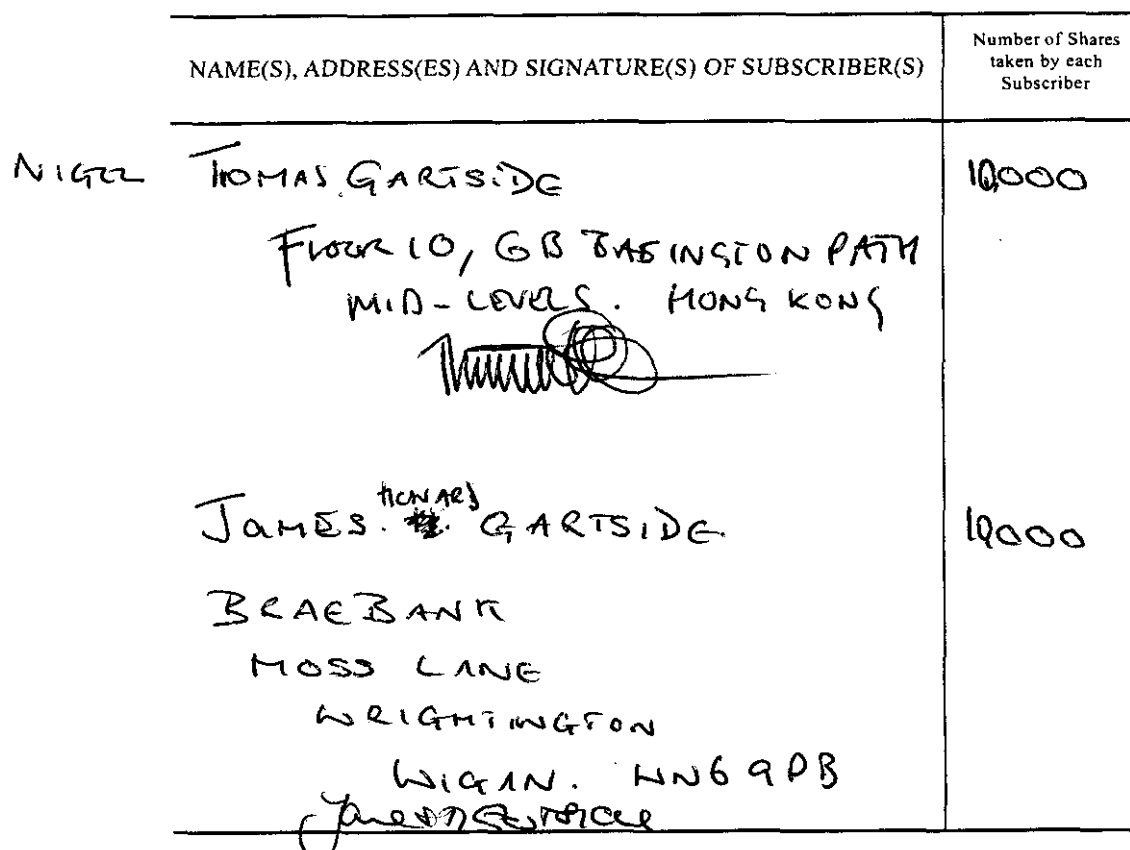 NAME(S), ADDRESS(ES) AND SIGNATURE(S) OF SUBSCRIBER(S)
Number of Shares
taken by each
Subscriber
NIGEL THOMAS GARTSIDE 10,000
FLOOR 10, 6B BABINGTON PATH
MID-LEVELS. HONG KONG
JAMES. HOWARD GARTSIDE 10,000
BRAEBANK
MOSS LANE
WRIGHTINGTON
WIGAN. WN6 9PB